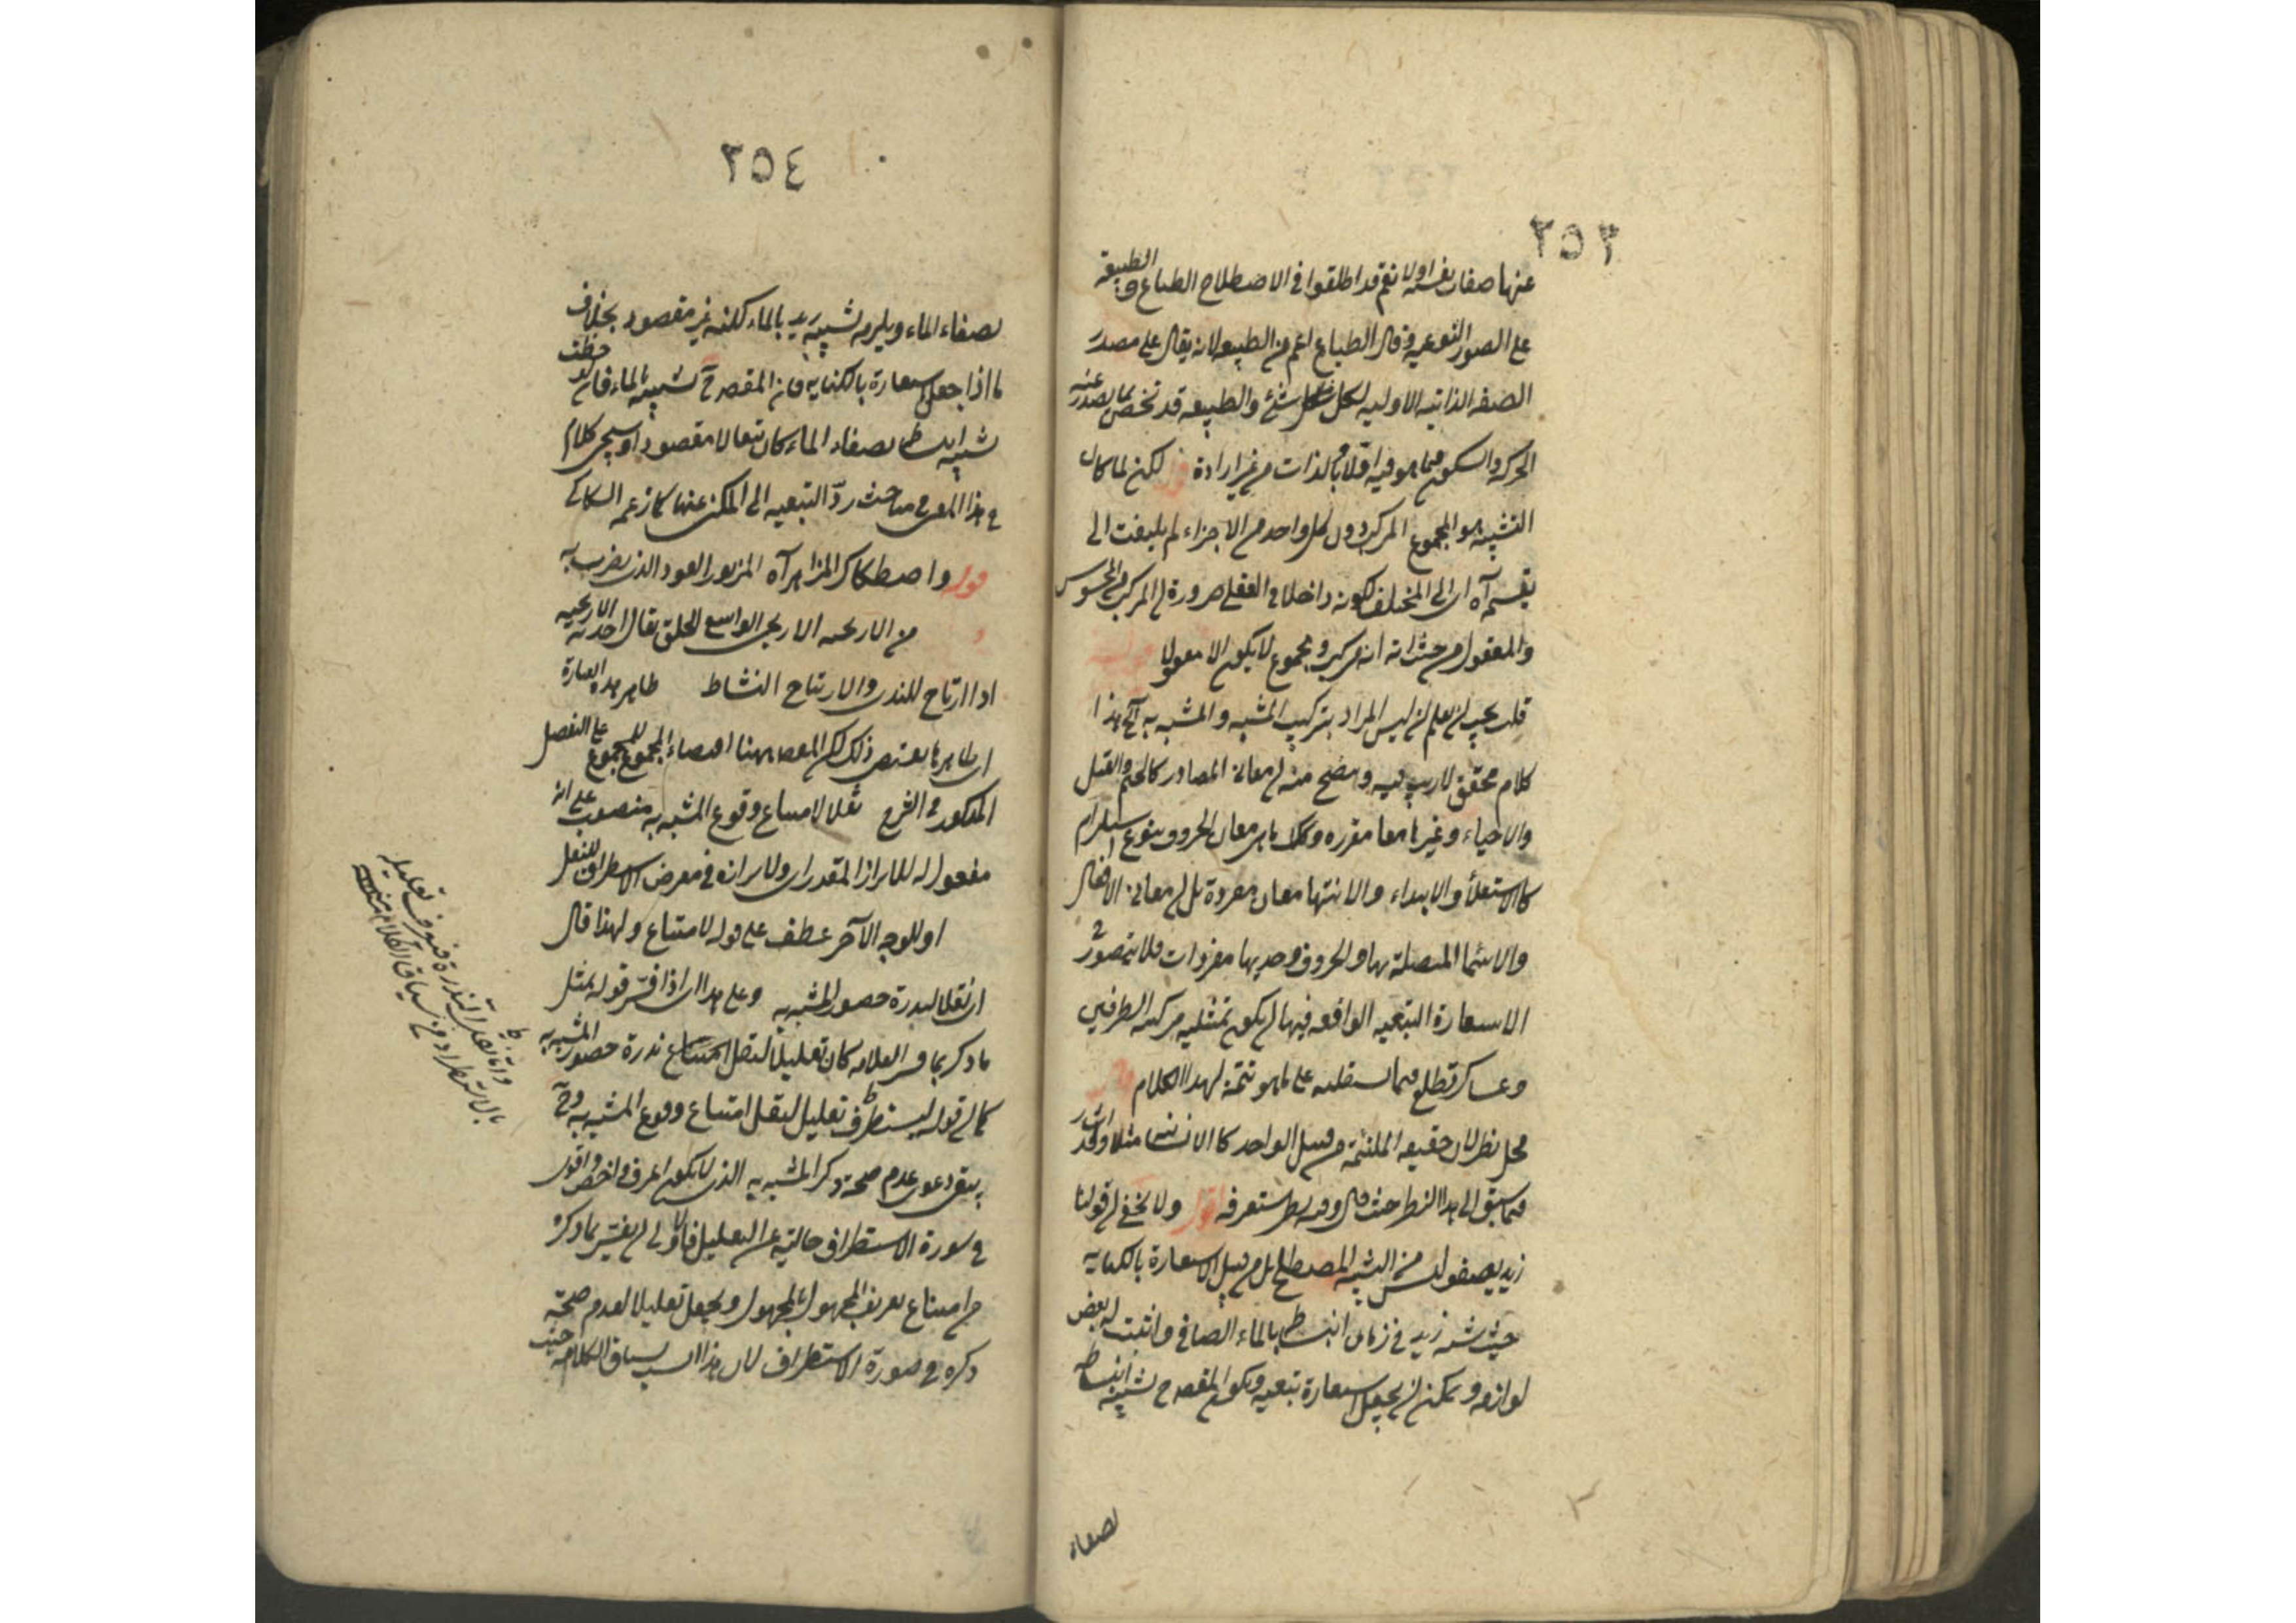 ٢٥٣
عنها صفات نفسه اولا نعم قد اطلقوا في الاصطلاح الطباع والطبيعة
على الصور النوعيه وقال الطباع اعم من الطبيعه لانه يقال على مصدر
الصفه الذاتيه الاوليه لكل شئ والطبيعه قد تخص بما يصدر عنه
الحركه والسكون فيما هو فيه اولا وبالذات من غير ارادة قوله لكن لما كان
التشبيه هو المجموع المركب دون كل واحد من الاجزاء لم يلتفت الى
تقسيمه آه اى الى المختلف لكونه داخلا فى العقلى ضرورة ان المركب من المحسوس
والمعقول من حيث انه مركب ومجموع لا يكون الا معقولا
قلت يجب ان يعلم ان ليس المراد بتركيب المشبه والمشبه به آلخ هذا
كلام محقق لا ريب فيه ويتضح منه ان معانى المصادر كالختم والقتل
والاحياء وغيرها معا مفرده وكذا ما هى معانى الحروف بنوع استلزام
كالاستعلأ والابتداء والانتها معان مفردة بل ان معانى الافعال
والاسما المتصلة بها والحروف وحديها مفردات فلا يتصور فى
الاسعارة التبعيه الواقعه فيها ان يكون تمثيليه مركبه الطرفين
وعساك تطلع فيما سنقليه على ما هو تتمة لهذا الكلام قوله
محل نظر لان حقيقه الملتئمة من قبيل الواحد كالانسانيه مثلا وقد اشار
فيما سبق الى هذا النظر حيث قال وفيه نظر ستعرفه قوله ولا يخفى ان قولنا
زيد يصفو ليس من التشبيه المصطلح بل من قبيل الاسعارة بالكنايه
حيث شبه زيد فى زمان انبساطه بالماء الصافى واثبت له بعض
لوازمه ويمكن ان يجعل اسعارة تبعيه ويكون المقصد ح تشبيه انبساطه
بصفاء
٢٥٤
بصفاء الماء ويلزمه تشبيه زيد بالماء لكنه غير مقصود بخلاف
ما اذا جعل اسعارة بالكنايه فان المقصد ح تشبيه بالماء فان لوحظت
تشبيه انبساطه بصفاء الماء كان تبعا لا مقصودا وسيجى كلام
فى هذا المعنى فى مباحث ردّ التبعيه الى المكنى عنها كما زعمه السكاكى
قوله واصطكاك المزاهر آه المزهر العود الذى يضرب به
من الاريحيه الاريحى الواسع الخلق يقال اخذته الاريحيه
اذا ارتاح للندى والارتياح النشاط ظاهر هذه العبارة
اى ظاهرها يقتضى ذلك لكن المقصد ههنا اقتضاء المجموع للمجموع على التفصيل
المذكور فى الشرح نقلا لامتناع وقوع المشبه به منصوب على انه
مفعول له للابراز المقدر اى ولابرازه فى معرض الاستطراف للنقل
او للوجه الآخر عطف على قوله لامتناع ولهذا قال
اى نقلا لندرة حضور المشبه به وعلى هذا اى اذا فسّر قوله بمثل
ما ذكر بما فسر العلامه كان تعليلا لنقل امتناع ندرة حضور المشبه به
كما ان قوله ليستطرف تعليل لنقل امتناع وقوع المشبه به وح
يبقى دعوى عدم صحة ذكر المشبه به الذى لا يكون اعرف واخص واقوى
فى صورة الاستطراف خالية عن التعليل فالاولى ان يفسّر بما ذكره
من امتناع تعريف المجهول بالمجهول ويجعل تعليلا لعدم صحة
ذكره فى صورة الاستطراف لان هذا انسب بسياق الكلام حيث
واما نقل الندرة فيعرف تعليله
بالاستطراد من سياق الكلام منه